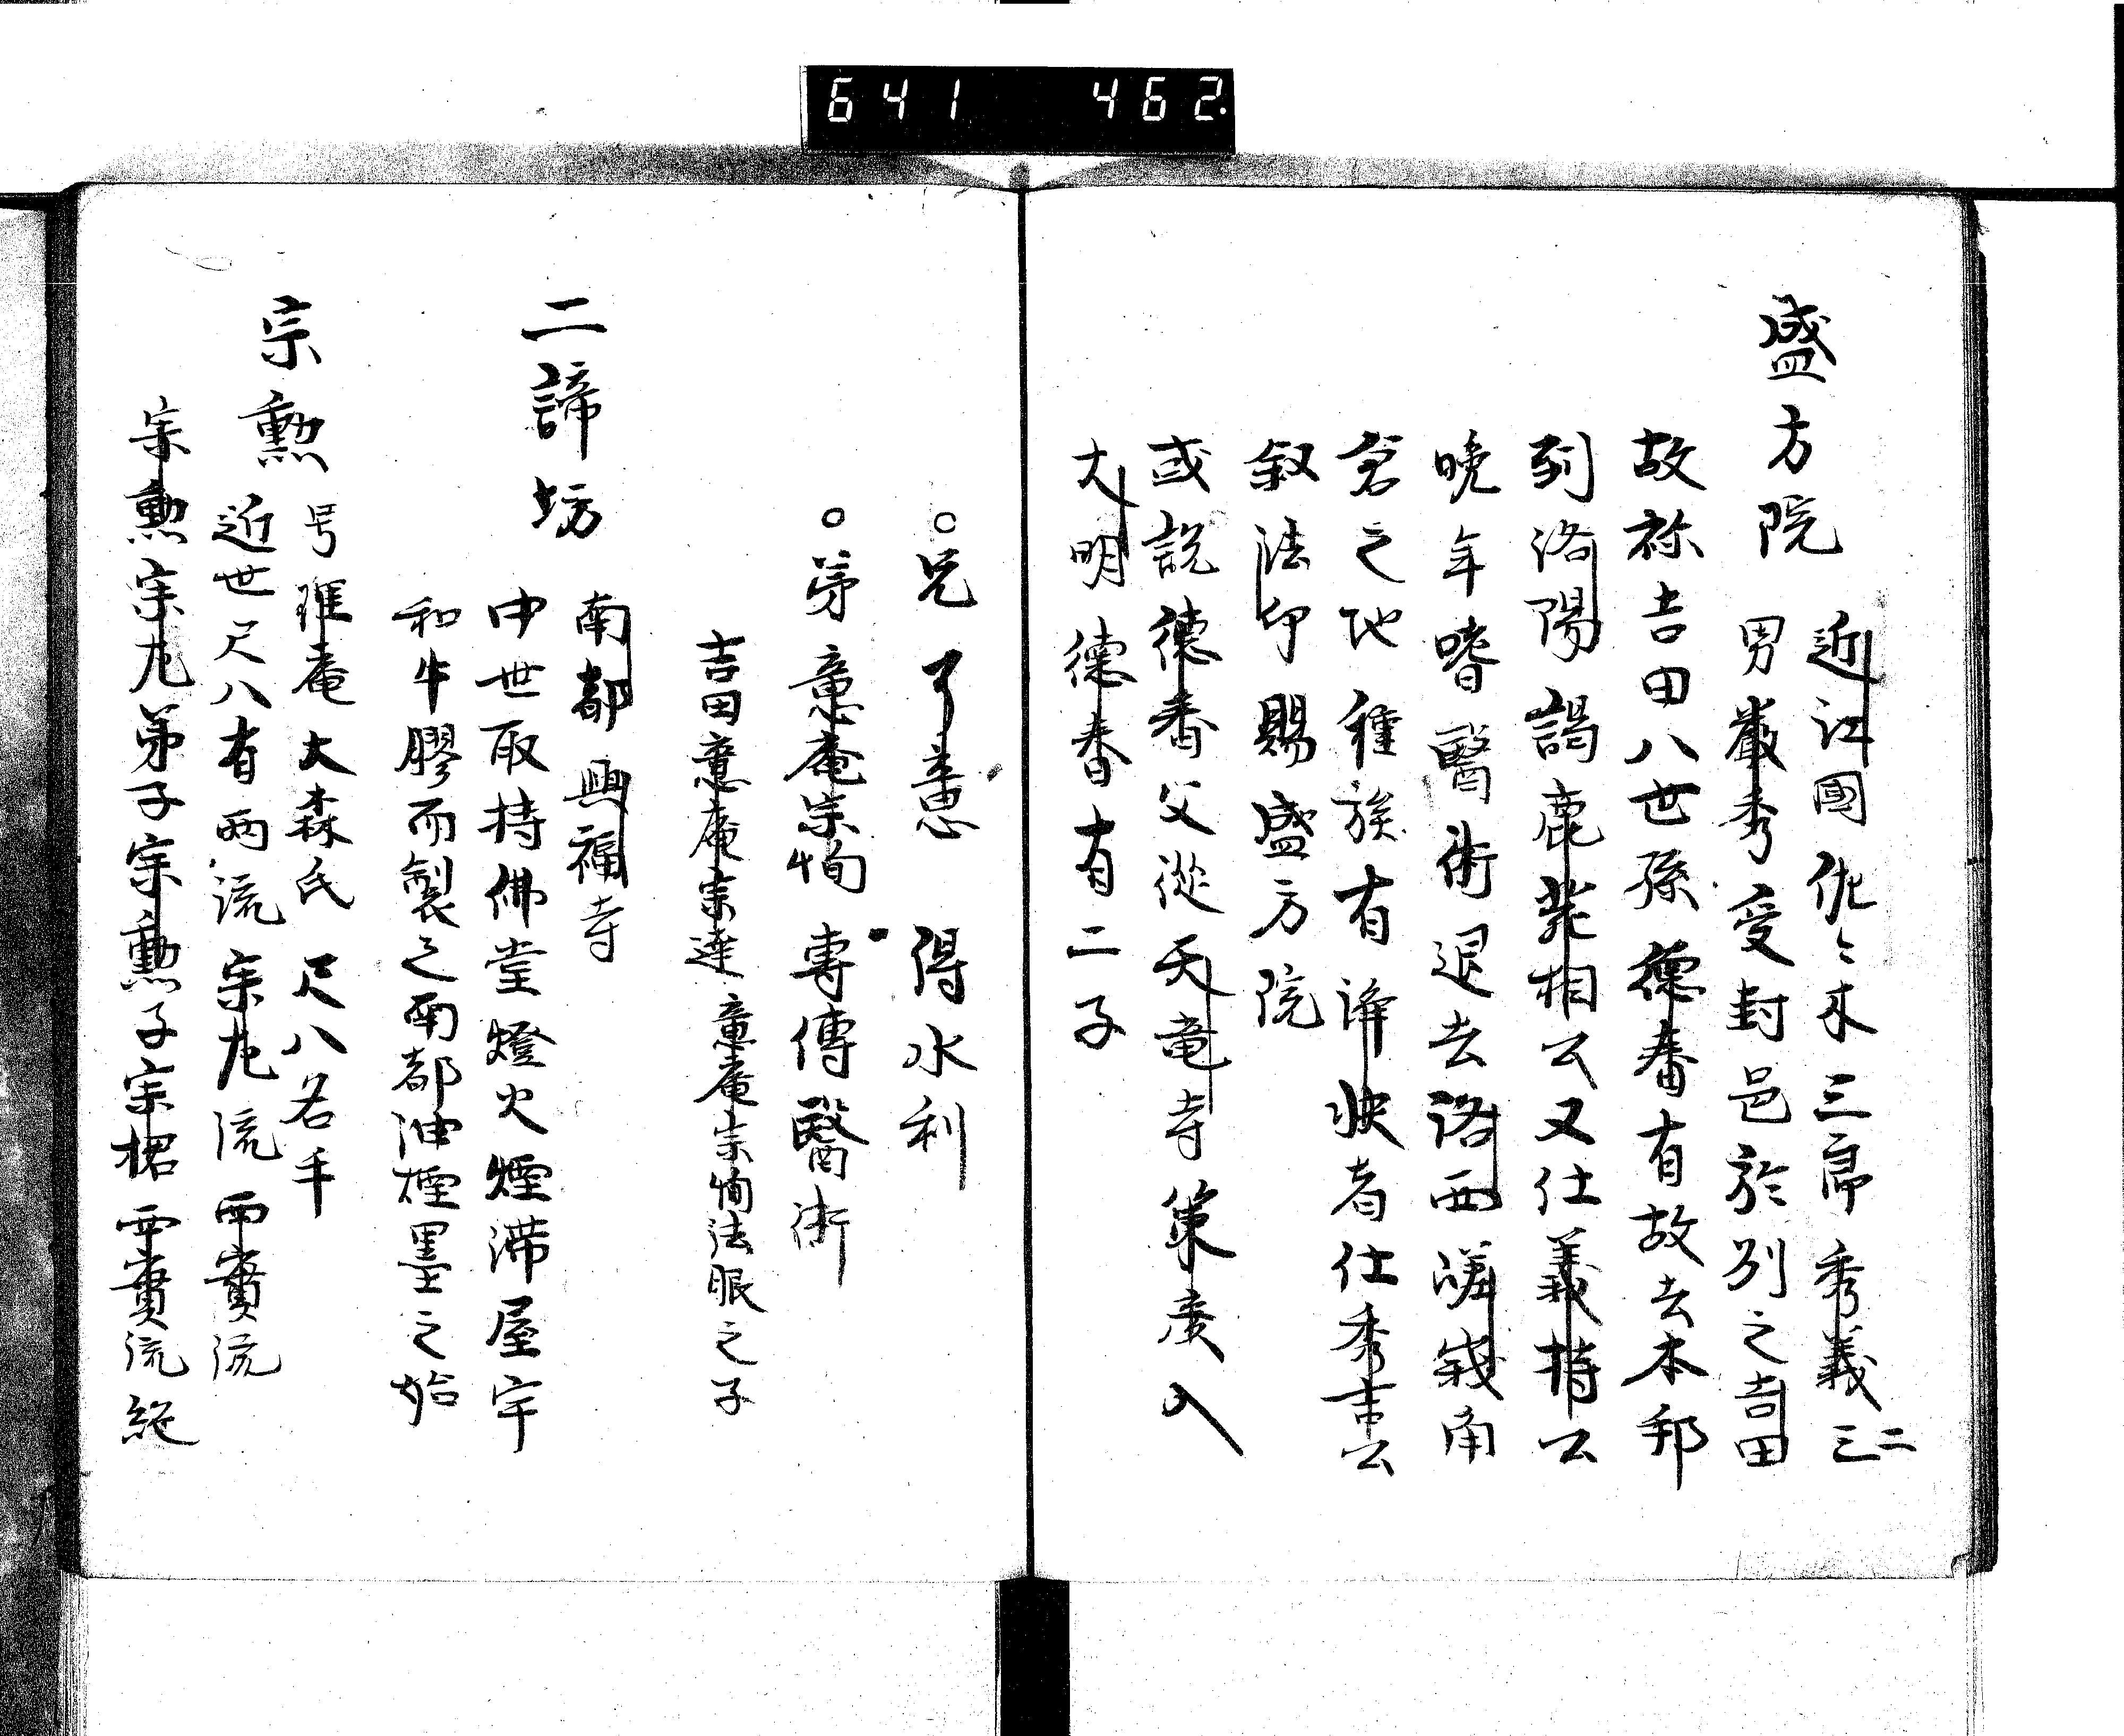 641 462.
盛方院
近江國佐々木三郎秀義三二
男嚴秀受封邑於別之吉田
故称吉田八世孫德春有故去本邦
到洛陽謁鹿苑相公又仕義持公
晩年嗜醫術退去洛西嵯峩角
倉之地種族有諱休者仕秀吉公
叙法印賜盛方院
或說德春父從天竜寺策彦入
大明德春有二子
○兄了意 得水利
○弟意庵宗恂 專傳醫術
吉田意庵宗達意庵宗恂法眼之子
二諦坊
南都興福寺
中世取持佛堂燈火煙滞屋宇
和牛膠而製之南都油煙墨之始
宗勲
号理庵大森氏 尺八名手
近世尺八有両流宗九流西實流
宗勲宗九弟子宗勲子宗椐西實流絶